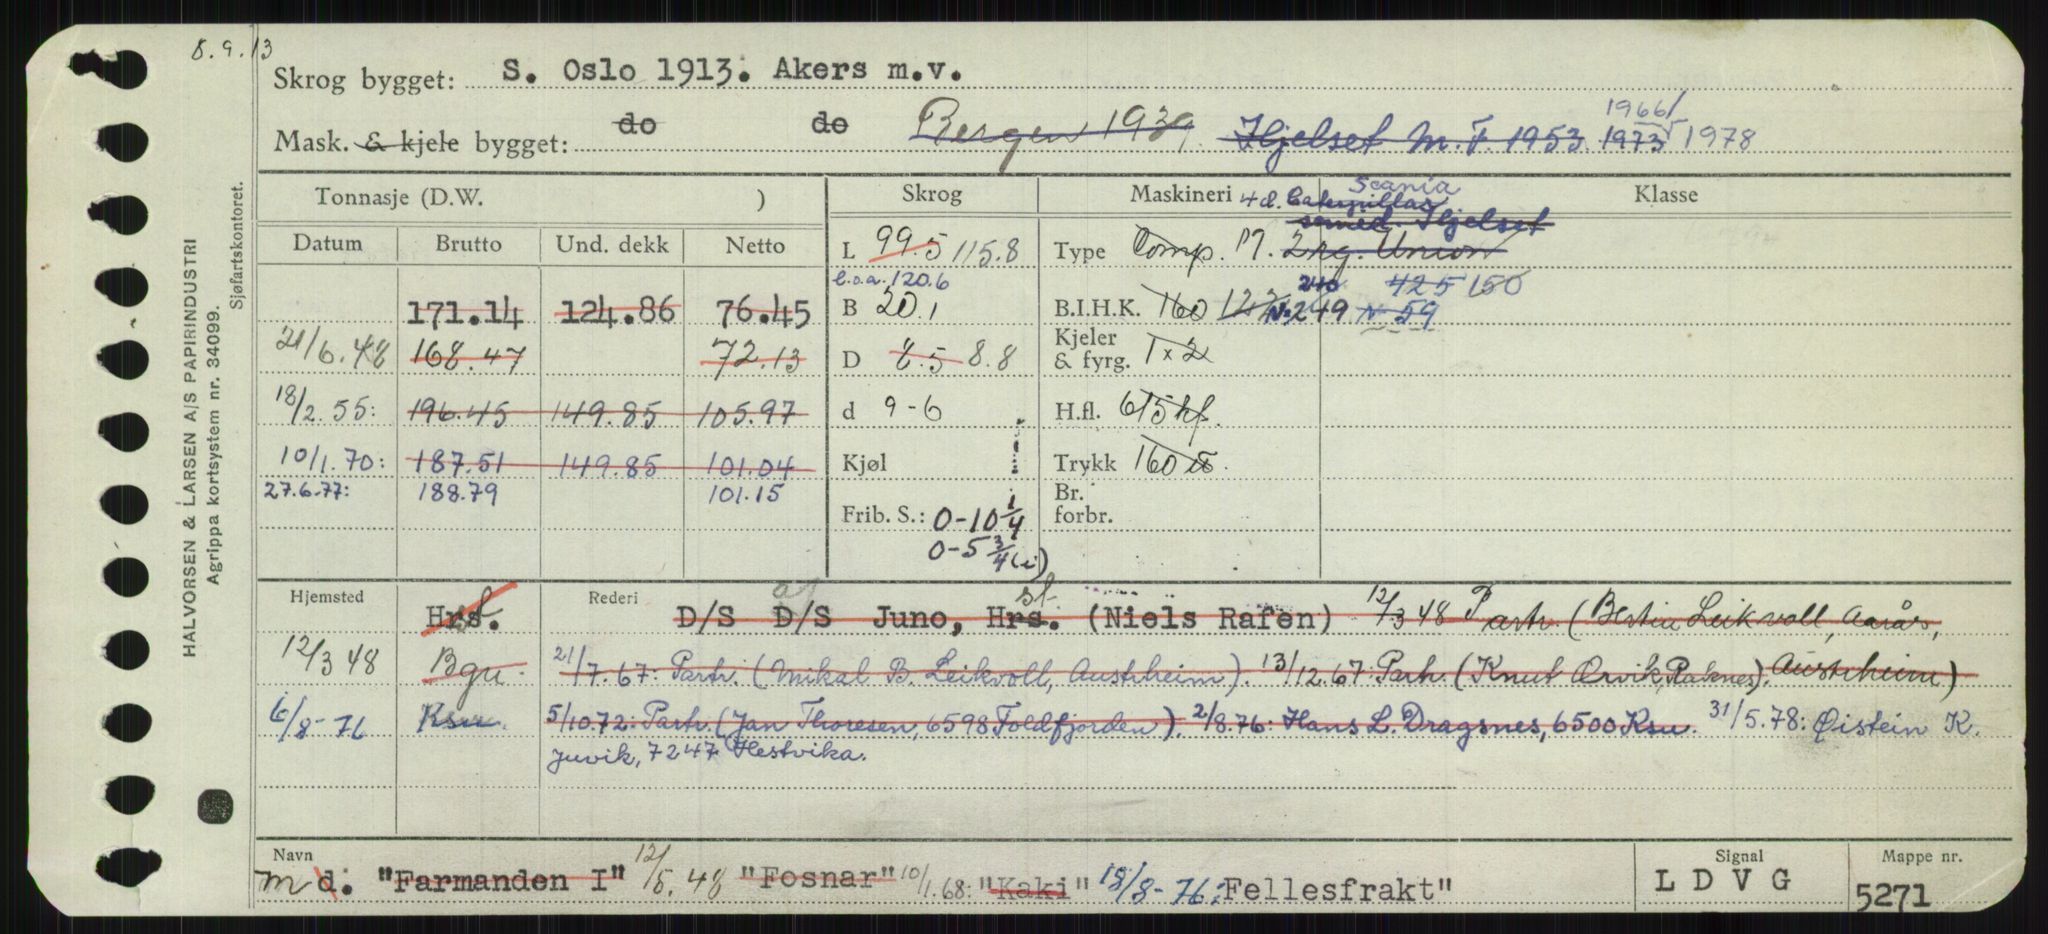 8.9.13
Skrog bygget: S. Oslo 1913. Akers m.v.
1966/
Mask. & kjele bygget: do do Bergen 1939 Hjelset M.F. 1953 1973 1978
Tonnasje (D.W. ) Skrog Maskineri 4 d. Caterpillar Scania Klasse
semid. Hjelset
Datum Brutto Und. dekk Netto L 99.5 115.8 Type Comp. M. 2 kg. Union
l.o.a. 120.6 240 425 150
171.14 124.86 76.45 B 20.1 B.I.H.K. 160 123 N. 249 N 59
21/6.48 168.47 72.13 D 8.5 8.8 Kjeler & fyrg. 1 x 2
18/2.55: 196.45 149.85 105.97 d 9-6 H.fl. 615 hf.
10/1.70: 187.51 149.85 101.04 Kjøl Trykk 160
27.6.77: 188.79 101.15 Br. forbr.
Frib. S.: 0-10 1/4
0-5 3/4 (i)
Hjemsted Hrst. Rederi D/S af D/S Juno, Hrst. (Niels Rafen) 12/3 48 Partr. (Bertin Leikvoll, Aarås,
12/3 48 Bgn. 21/7.67: Partr. (Mikal B. Leikvoll, Austrheim). 13/12.67: Partr. (Knut Ørvik, Raknes). Austrheim)
6/8-76 Ksu. 5/10.72: Partr. (Jan Thoresen, 6598 Foldfjorden). 2/8.76: Hans L. Dragsnes, 6500 Ksu. 31/5.78: Øistein K.
Juvik, 7247 Hestvika.
Navn Signal Mappe nr.
m d. "Farmanden I" 12/5.48 "Fosnar" 10/1.68: "Kaki" 18/8-76: Fellesfrakt" L D V G 5271
HALVORSEN & LARSEN A/S PAPIRINDUSTRI
Agrippa kortsystem nr. 34099.
Sjøfartskontoret.